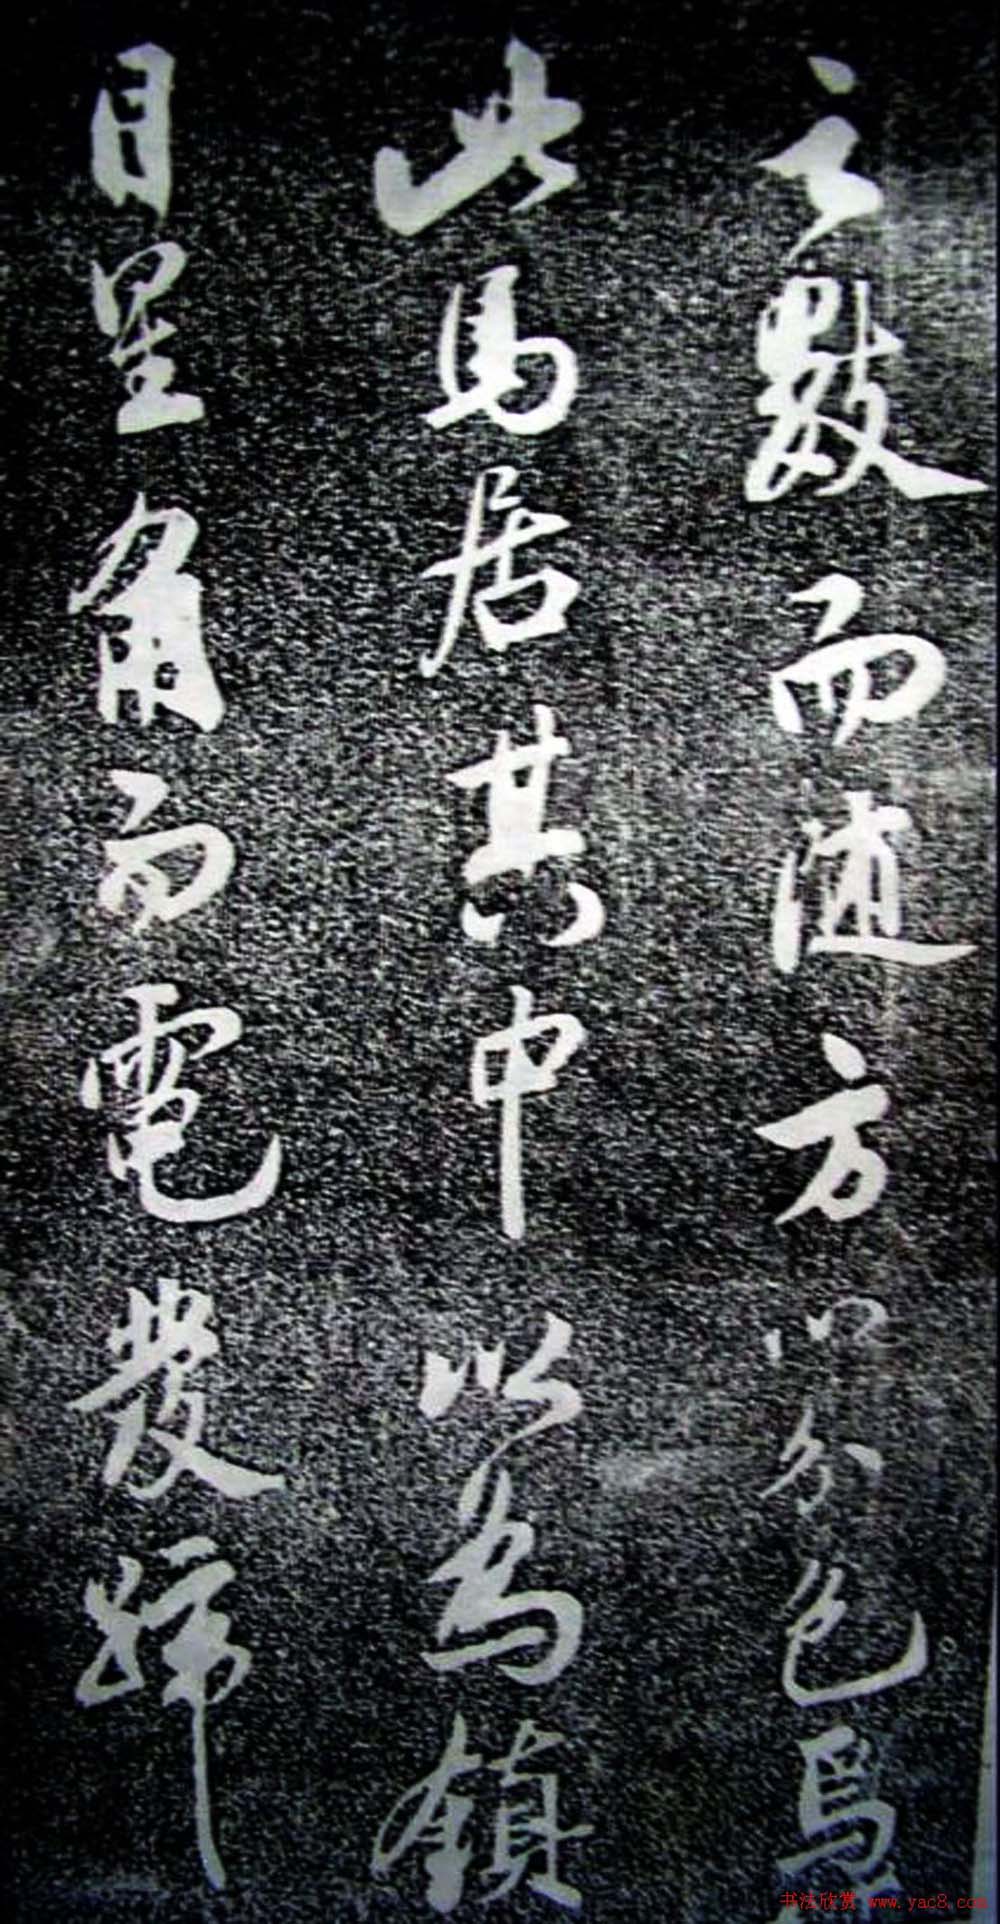 之數而随方以分色焉
此馬居其中以為鎮
目星角而電發蹄
书法欣赏 www.yac8.com